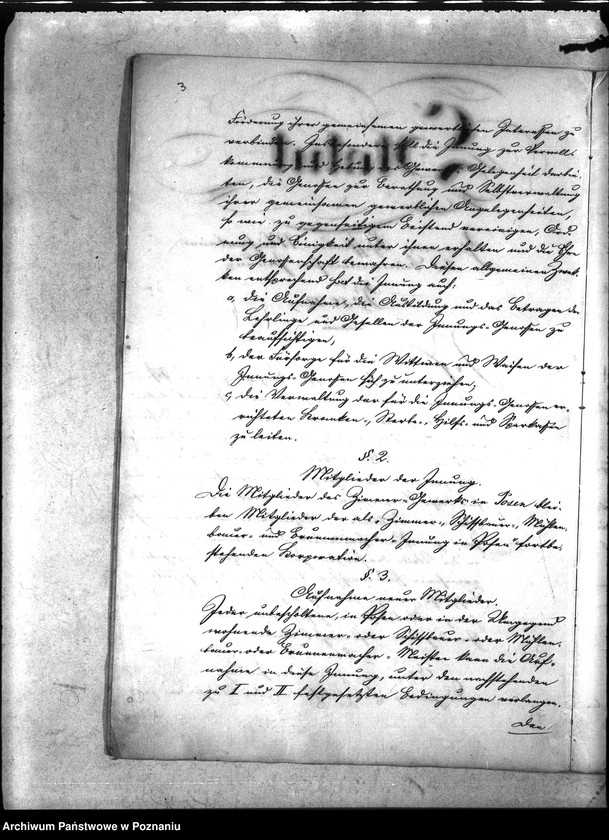 3
Förderung ihrer gemeinsamen gewerblichen Interessen zu
verbinden. Insbesondere soll die Innung zur Vervoll-
kommnung und Hebung des Gewerbes Gelegenheit darbie-
ten, die Genossen zur Berathung und Selbstverwaltung
ihrer gemeinsamen gewerblichen Angelegenheiten,
so wie zu gegenseitigem Beistand vereinigen, Ord-
nung und Einigkeit unter ihnen erhalten und die Ehre
der Genossenschaft bewahren. Diesen allgemeinen Zwek-
ken entsprechend hat die Innung auch:
a, die Aufnahme, die Ausbildung und das Betragen der
Lehrlinge und Gesellen der Innungs-Genossen zu
beaufsichtigen,
b, der Fürsorge für die Wittwen und Waisen der
Innungs-Genossen sich zu unterziehen,
c, die Verwaltung der für die Innungs-Genossen er-
richteten Kranken-, Sterbe-, Hilfs- und Sparkassen
zu leiten.
§. 2.
Mitglieder der Innung.
Die Mitglieder des Zimmer-Gewerks in Posen blei-
ben Mitglieder der als „Zimmer-, Schiffbauer-, Mühlen-
bauer- und Brunnenmacher-Innung in Posen" fortbe-
stehenden Korporation.
§. 3.
Aufnahme neuer Mitglieder.
Jeder unbescholtene, in Posen oder in der Umgegend
wohnende Zimmer- oder Schiffbauer- oder Mühlen-
bauer- oder Brunnenmacher-Meister kann die Auf-
nahme in diese Innung, unter den nachstehenden
zu I und II festgesetzten Bedingungen verlangen.
Den
Archiwum Państwowe w Poznaniu